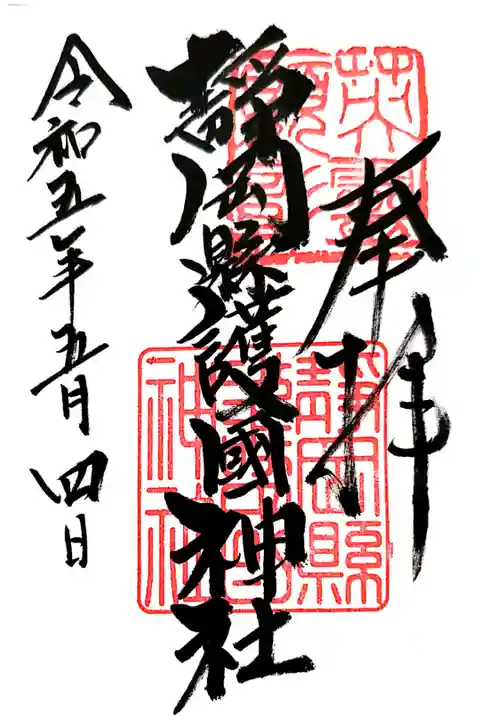 奉拝
靜岡縣護國神社
令和五年五月四日
靜岡縣
護國
神社